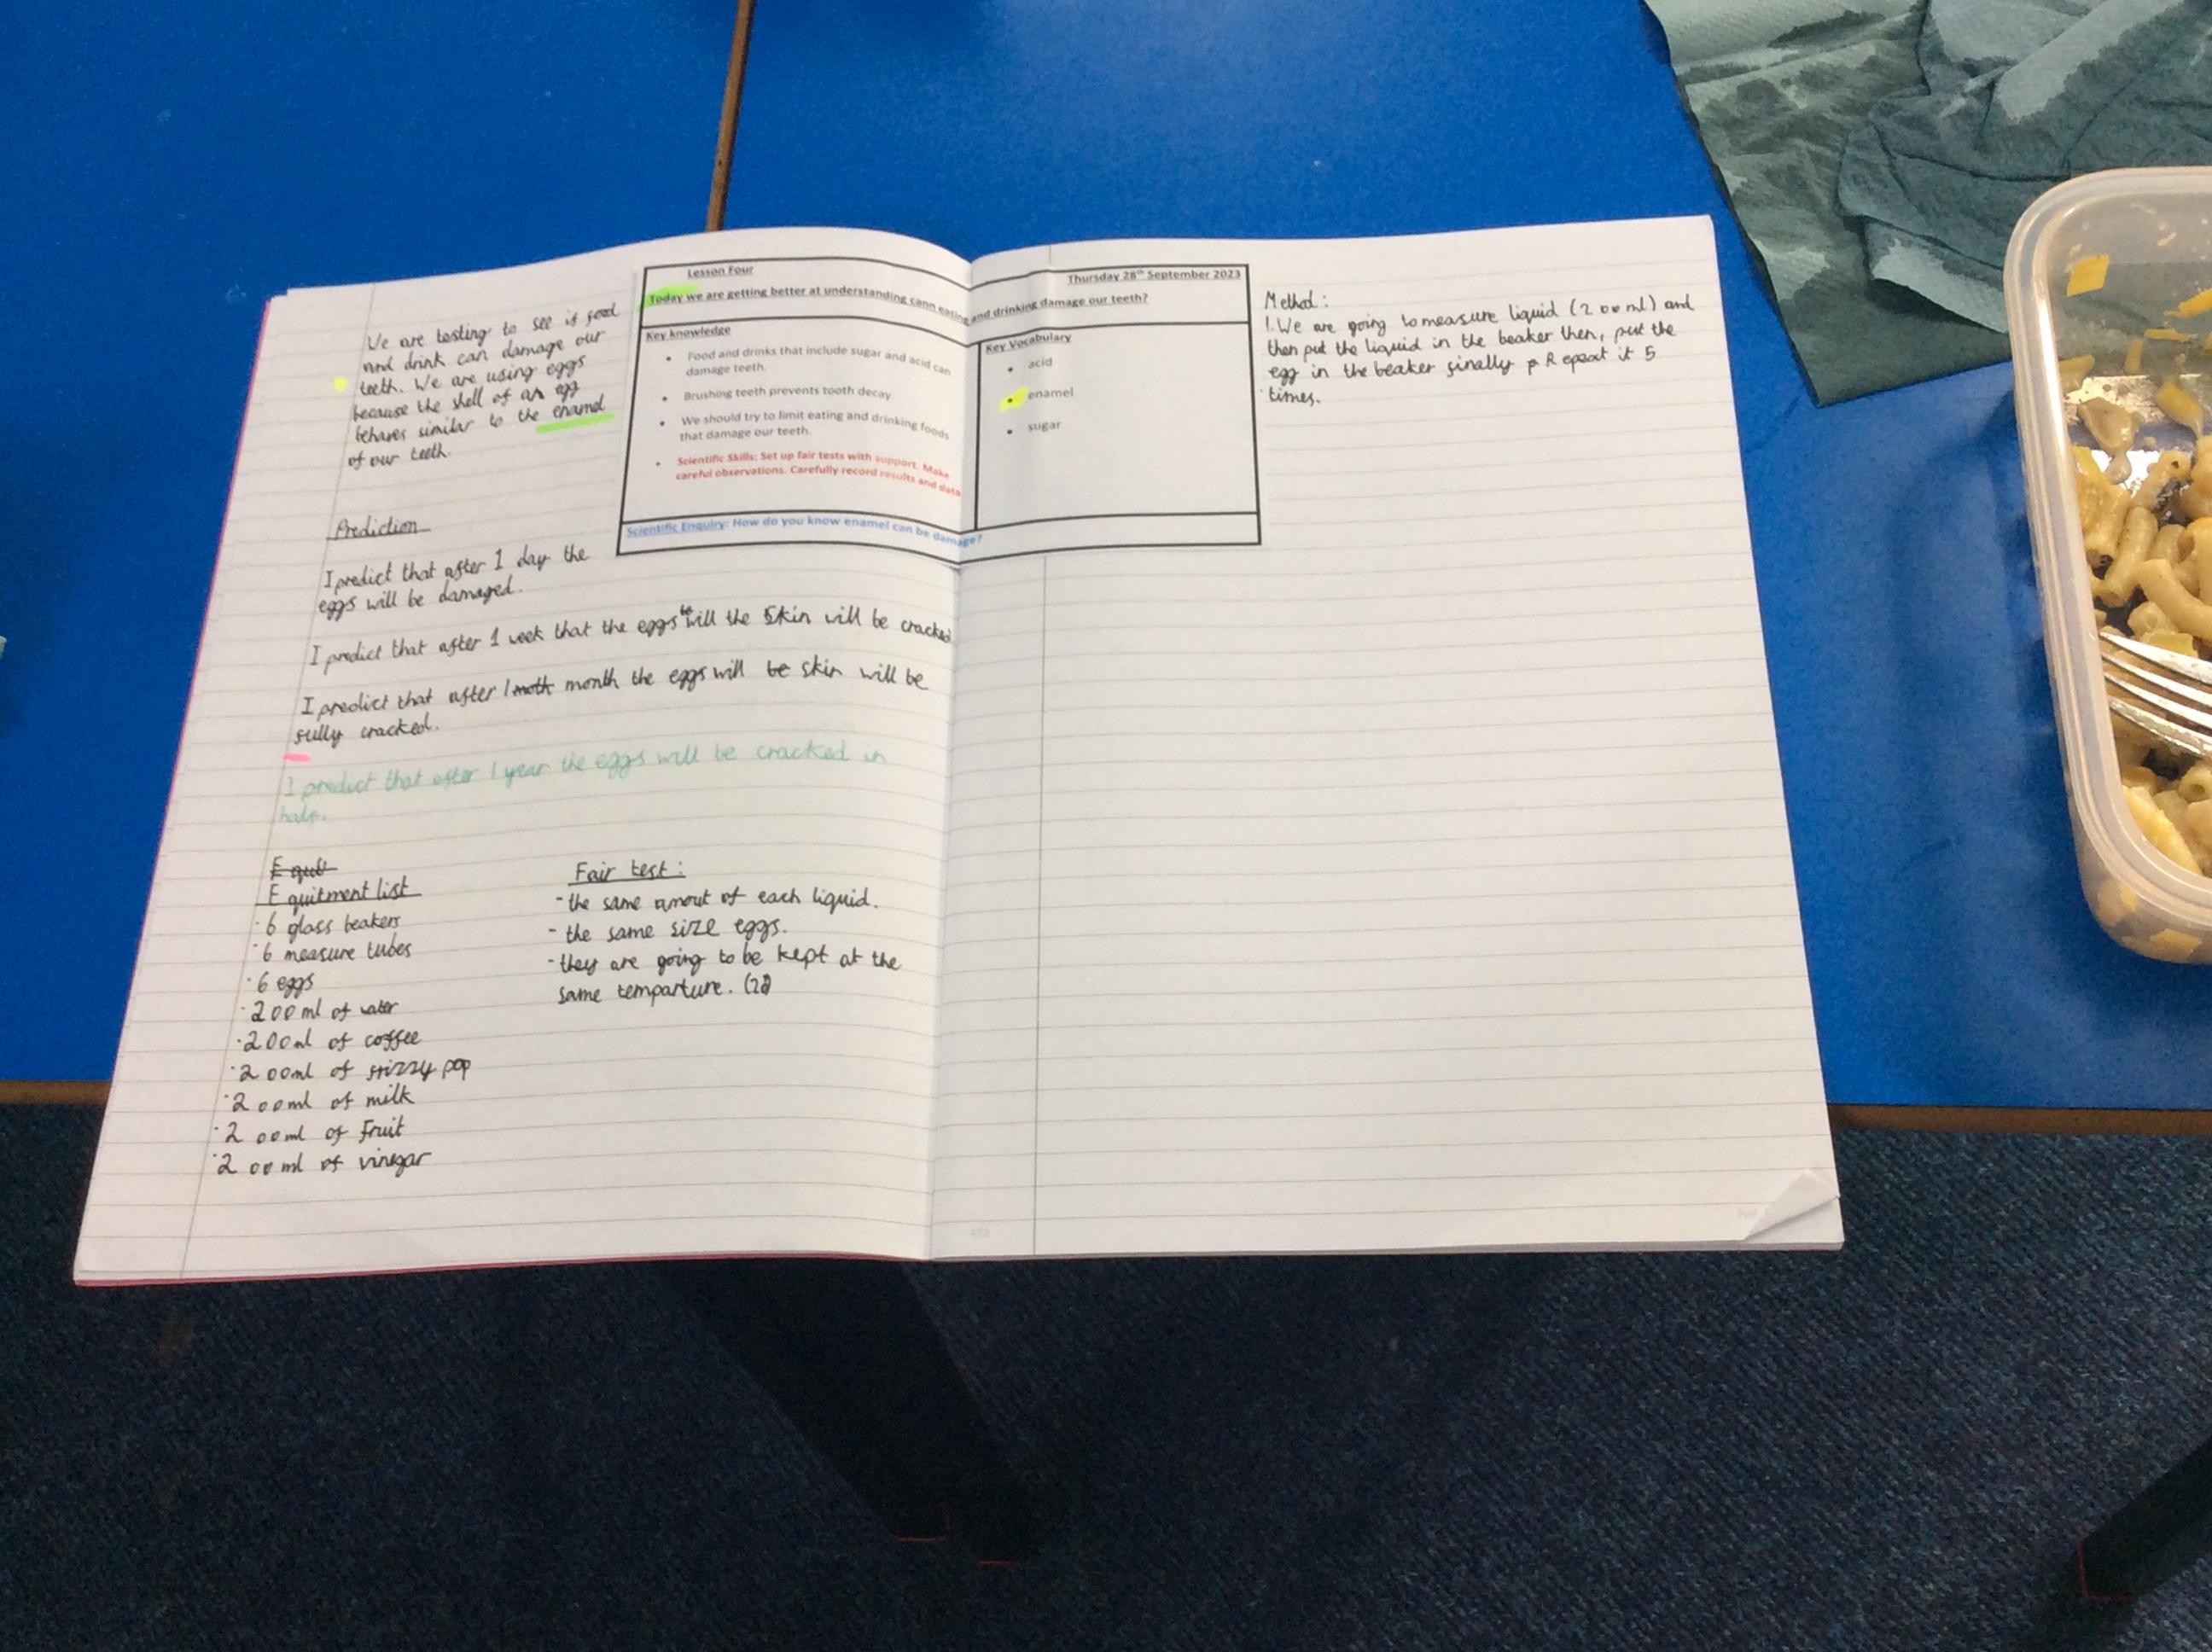 We are testing to see if food
and drink can damage our
teeth. We are using eggs
because the shell of an egg
behaves similar to the enamel
of our teeth.
Lesson Four
Thursday 28th September 2023
Today we are getting better at understanding cann eating and drinking damage our teeth?
Key knowledge
Food and drinks that include sugar and acid can
damage teeth.
Brushing teeth prevents tooth decay.
We should try to limit eating and drinking foods
that damage our teeth.
Scientific Skills: Set up fair tests with support. Make
careful observations. Carefully record results and data
Key Vocabulary
acid
enamel
sugar
Scientific Enquiry: How do you know enamel can be damage?
Prediction
I predict that after 1 day the
eggs will be damaged.
I predict that after 1 week that the eggs will the skin will be cracked
I predict that after 1 moth month the eggs will be skin will be
fully cracked.
I predict that after 1 year the eggs will be cracked in
half.
Equitment list
6 glass beakers
6 measure tubes
6 eggs
200ml of water
200ml of coffee
200ml of frizzy pop
200ml of milk
200ml of Fruit
200ml of vinegar
Fair test:
- the same amout of each liquid.
- the same size eggs.
- they are going to be kept at the
same temparture.
Method:
1. We are going to measure liquid (200ml) and
then put the liquid in the beaker then, put the
egg in the beaker finally Repeat it 5
times.